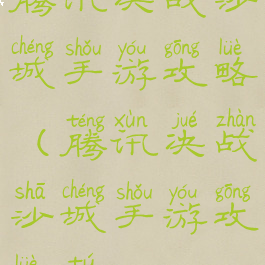 腾讯决战沙
chéng shǒu yóu gōng lüè
城手游攻略
téng xùn jué zhàn
（腾讯决战
shā chéng shǒu yóu gōng
沙城手游攻
lüè tú